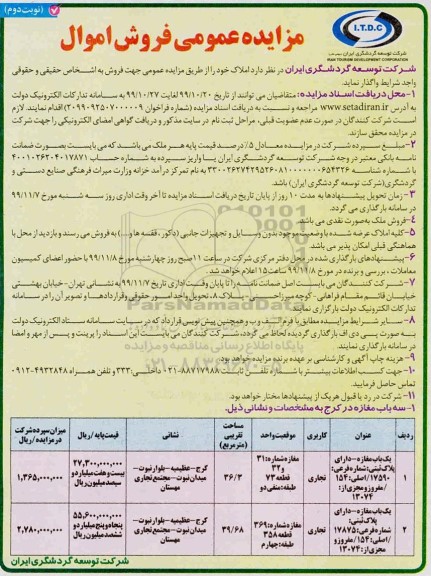 (نوبت دوم)
مزایده عمومی فروش اموال
I.T.D.C
شرکت توسعه گردشگری ایران
IRAN TOURISM DEVELOPMENT CORPORATION
شرکت توسعه گردشگری ایران در نظر دارد املاک خود را از طریق مزایده عمومی جهت فروش به اشخاص حقیقی و حقوقی
واجد شرایط واگذار نماید
۱- محل دریافت اسناد مزایده: متقاضیان می توانند از تاریخ ۹۹/۱۰/۲۰ لغایت ۹۹/۱۰/۲۷ به سامانه تدارکات الکترونیک دولت
به آدرس www.setadiran.ir مراجعه و نسبت به دریافت اسناد مزایده (شماره فراخوان ) اقدام نمایند. لازم
است شرکت کنندگان در صورت عدم عضویت قبلی، مراحل ثبت نام در سایت مذکور و دریافت گواهی امضای الکترونیکی را جهت شرکت
در مزایده محقق سازند.
۲- مبلغ سپرده شرکت در مزایده معادل ۵٪ درصد قیمت پایه هر ملک می باشد که می بایست بصورت ضمانت
نامه بانکی معتبر در وجه شرکت توسعه گردشگری ایران یا واریز سپرده به شماره حساب
با شماره شناسه به نام تمرکز درآمد خزانه وزارت میراث فرهنگی صنایع دستی و
گردشگری (شرکت توسعه گردشگری ایران) باشد.
۳- زمان تحویل پیشنهادها به مدت ۱۰ روز از پایان تاریخ دریافت اسناد مزایده تا آخر وقت اداری روز سه شنبه مورخ ۹۹/۱۱/۷
در سامانه بارگذاری می گردد.
۴- فروش ملک به صورت نقدی می باشد.
۵- کلیه املاک عرضه شده با وضعیت موجود بدون وسایل و تجهیزات جانبی (دکور، قفسه ها و...) به فروش می رسند و بازدید از محل با
هماهنگی قبلی امکان پذیر می باشد.
۶- پیشنهادهای بارگذاری شده در محل دفتر مرکزی شرکت در ساعت ۱۱ صبح روز چهارشنبه مورخ ۹۹/۱۱/۸ با حضور اعضای کمیسیون
معاملات، بررسی و برنده در مورخ ۹۹/۱۱/۸ ساعت ۱۵ اعلام خواهد شد.
۷- شرکت کنندگان می بایست اصل ضمانت نامه را تا پایان وقت اداری تاریخ ۹۹/۱۱/۷ به نشانی تهران- خیابان بهشتی
خیابان قائم مقام فراهانی- کوچه میرزا حسنی- پلاک ۸، تحویل واحد امور حقوقی و قراردادها و تصویر آن را در سامانه
تدارکات الکترونیک دولت بارگذاری نمایند.
۸- سایر شرایط مزایده مطابق با فرم الف و ب و همچنین پیش نویس قرارداد که در سایت سامانه ستاد الکترونیک دولت
به صورت پی دی اف بارگذاری گردیده لحاظ می گردد، شرکت کنندگان می بایست این اسناد را پرینت و پس از مهر و امضا
در سامانه بارگذاری نمایند.
۹- هزینه چاپ آگهی و کارشناسی بر عهده برنده مزایده خواهد بود.
۱۰- جهت کسب اطلاعات بیشتر با شماره تلفن ثابت ۸۸۷۱۷۹۸۸-۰۲۱ داخلی ۳۳۳ و تلفن همراه ۰۹۱۲۰۴۹۳۲۸۴۸
تماس حاصل فرمایید.
۱۱- شرکت در رد یا قبول هریک از پیشنهادها مختار خواهد بود.
۱- سه باب مغازه در کرج به مشخصات و نشانی ذیل.
ردیف مغازه کاربری موقعیت واحد مساحت تقریبی (مترمربع) نشانی قیمت پایه/ ریال میزان سپرده شرکت در مزایده/ ریال
۱ یک باب مغازه- دارای پلاک ثبتی: شماره فرعی: ۱۷۵۹۰/ اصلی: ۱۵۴/ مفروز و مجزی از: ۱۳۰۷۴ تجاری مغازه شماره: ۳۱ و ۳۲ قطعه ۷۳ طبقه: منفی دو ۳۶/۳ کرج- عظیمیه- بلوار نبوت- میدان نبوت- مجتمع تجاری مهستان ۲۷,۳۰۰,۰۰۰,۰۰۰ بیست و هفت میلیارد و سیصد میلیون ریال ۱,۳۶۵,۰۰۰,۰۰۰
۲ یک باب مغازه- دارای پلاک ثبتی: شماره فرعی: ۱۷۸۷۵/ اصلی: ۱۵۴/ مفروز و مجزی از: ۱۳۰۷۴ تجاری مغازه شماره: ۳۶۹ قطعه ۳۵۸ طبقه: چهارم ۳۹/۶۸ کرج- عظیمیه- بلوار نبوت- میدان نبوت- مجتمع تجاری مهستان ۵۵,۶۰۰,۰۰۰,۰۰۰ پنجاه و پنج میلیارد و ششصد میلیون ریال ۲,۷۸۰,۰۰۰,۰۰۰
شرکت توسعه گردشگری ایران